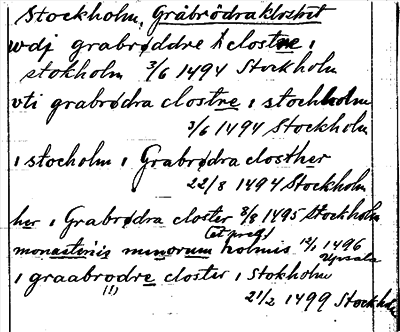 Stockholm, Gråbrödraklostret
wdj grabrøddre clostre i
stokholm 3/6 1494 Stockholm
vti grabrødra clostre i stochholm
3/6 1494 Stockholm
i stocholm i Grabrødra closther
22/8 1494 Stockholm
her i Grabrødra closter 8/8 1495 Stockholm
monasteriis minorum holmis 1496
Upsala
i graabrodre closter i Stokholm
(!)
21/2 1499 Stockholm